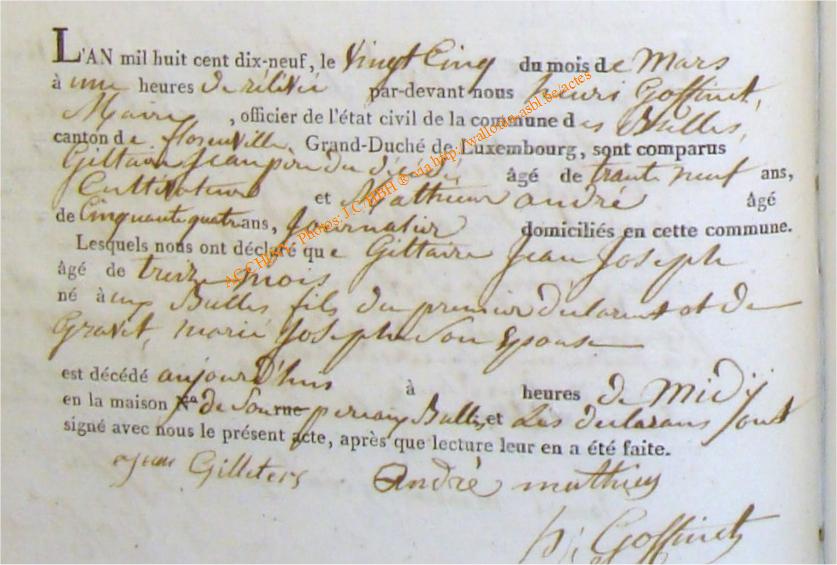 L'AN mil huit cent dix-neuf, le vingt Cinq du mois de Mars
à une heures de rélévée par-devant nous henri Goffinet,
Maire, officier de l'état civil de la commune des Bulles,
canton de florenville, Grand-Duché de Luxembourg, sont comparus
Giltaire Jean père du décédé âgé de trante neuf ans,
Cultivateur et Mathieu andré âgé
de Cinquante quatre ans, Journalier domiciliés en cette commune.
Lesquels nous ont déclaré que Giltaire Jean Joseph
âgé de treize mois
né à aux Bulles fils du premier déclarant et de
Gravet, marie Josephe son Epouse
est décédé aujourd'hui à heures de Midÿ
en la maison N.º de son rue perre aux Bulles, et Les déclarans sont
signé avec nous le présent acte, après que lecture leur en a été faite.
jean Gilleters André mathieu
h; Goffinet
ACCHLUX, Photos: J.C. HBH ® via http://wallonia-asbl.be/actes